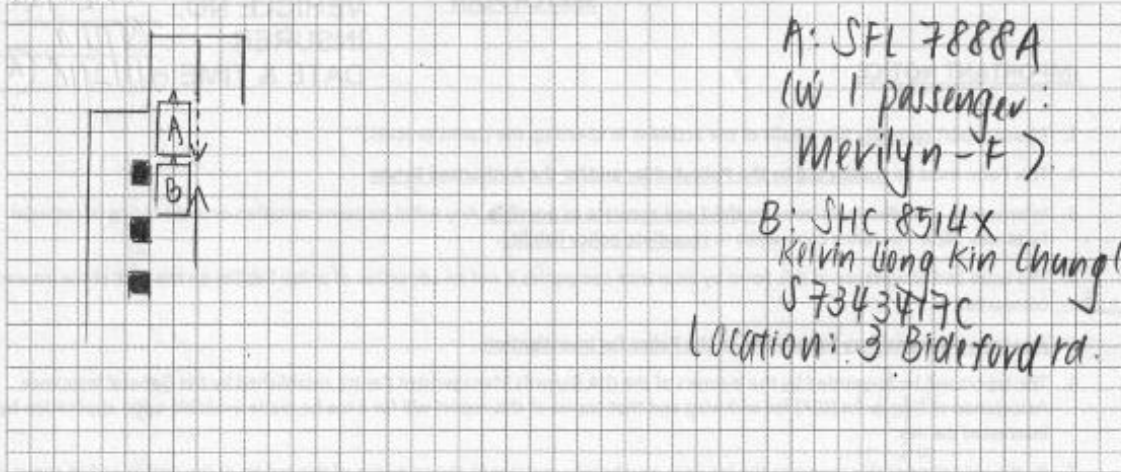 A: SFL 7888A
(W 1 passenger:
Merilyn - F)
B: SHC 8514X
Kelvin Liong Kin Chung
S7343417C
Location: 3 Bideford rd.
A
B